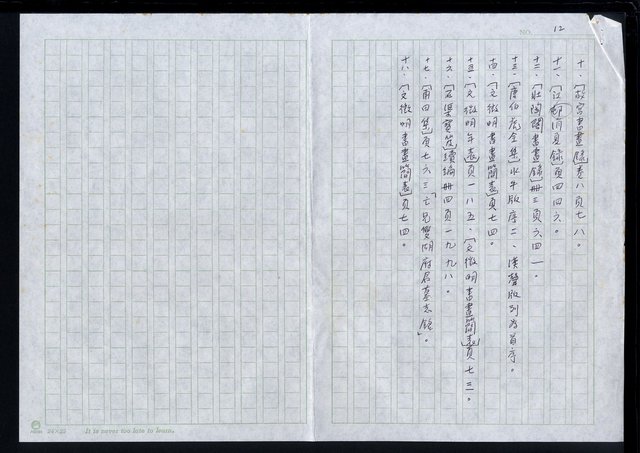 NO. 12
十．〔故宮書畫錄〕卷八頁七八。
十一．〔江邨消夏錄〕頁四四六。
十二．〔壯陶閣書畫錄〕冊三頁六四一。
十三．〔唐伯虎全集〕水牛版序二、漢聲版列為首序。
十四．〔文徵明書畫簡表〕頁七四。
十五．〔文徵明年表〕頁一八五、〔文徵明書畫簡表〕頁七三。
十六．〔石渠寶笈〕續編冊四頁一九九八。
十七．〔甫田集〕頁七六三「亡兄雙湖府君墓志銘」。
十八．〔文徵明書畫簡表〕頁七四。
24×25 It is never too late to learn.